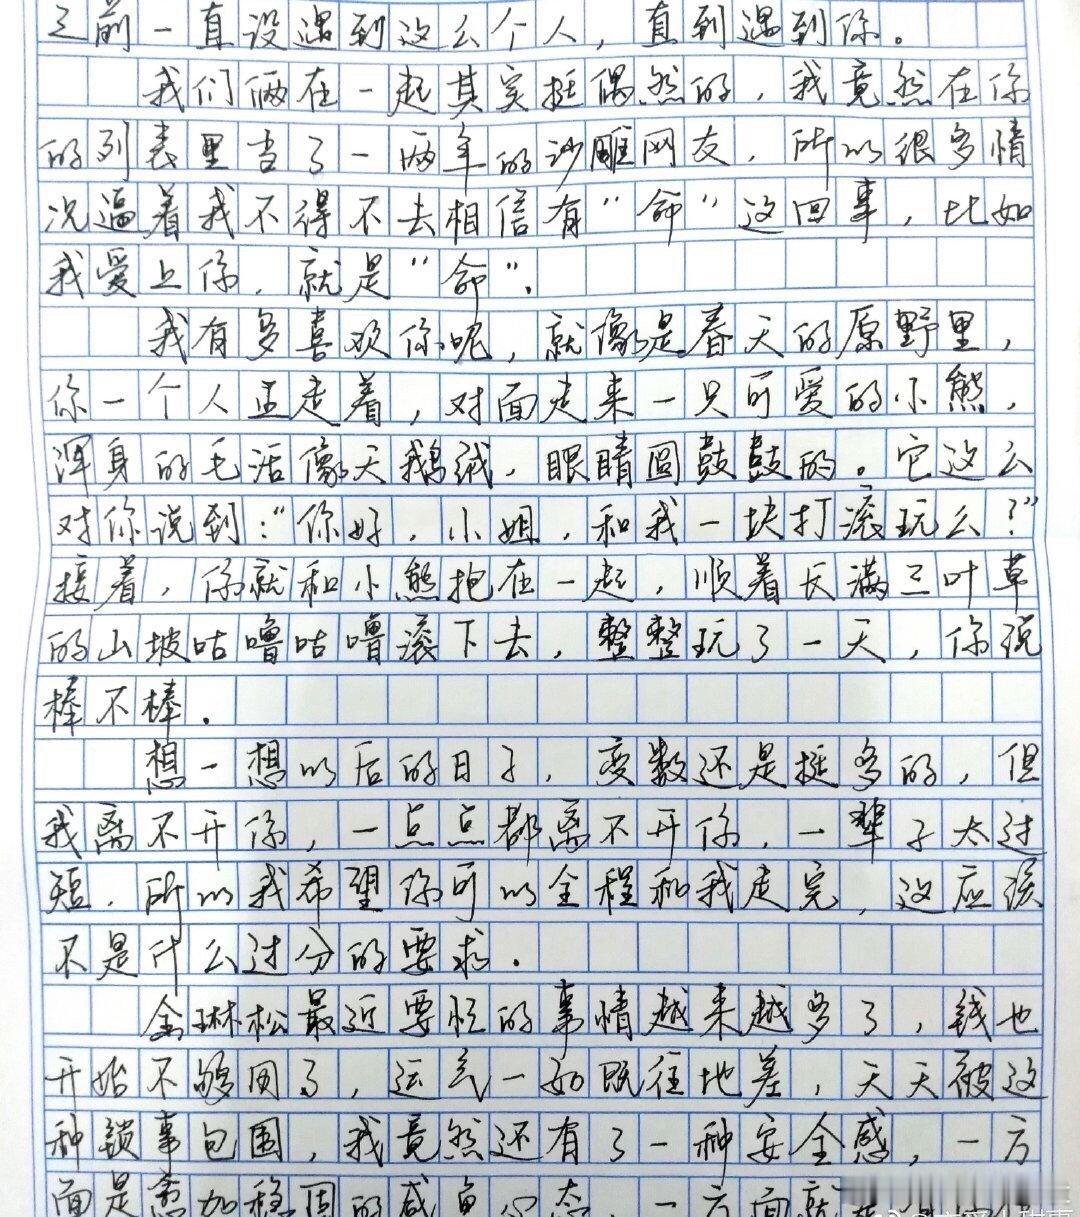 之前一直没遇到这么个人，直到遇到你。
我们俩在一起其实挺偶然的，我竟然在你
的列表里当了一两年的沙雕网友，所以很多情
况逼着我不得不去相信有“命”这回事，比如
我爱上你，就是“命”.
我有多喜欢你呢，就像是春天的原野里，
你一个人正走着，对面走来一只可爱的小熊，
浑身的毛活像天鹅绒，眼睛圆鼓鼓的。它这么
对你说到：“你好，小姐，和我一块打滚玩么？”
接着，你就和小熊抱在一起，顺着长满三叶草
的山坡咕噜咕噜滚下去，整整玩了一天，你说
棒不棒.
想一想以后的日子，变数还是挺多的，但
我离不开你，一点点都离不开你，一辈子太过
短，所以我希望你可以全程和我走完，这应该
不是什么过分的要求.
金琳松最近要忙的事情越来越多了，钱也
开始不够用了，运气一如既往地差，天天被这
种锁事包围，我竟然还有了一种安全感，一方
面是愈加稳固的感负心态，一方面就